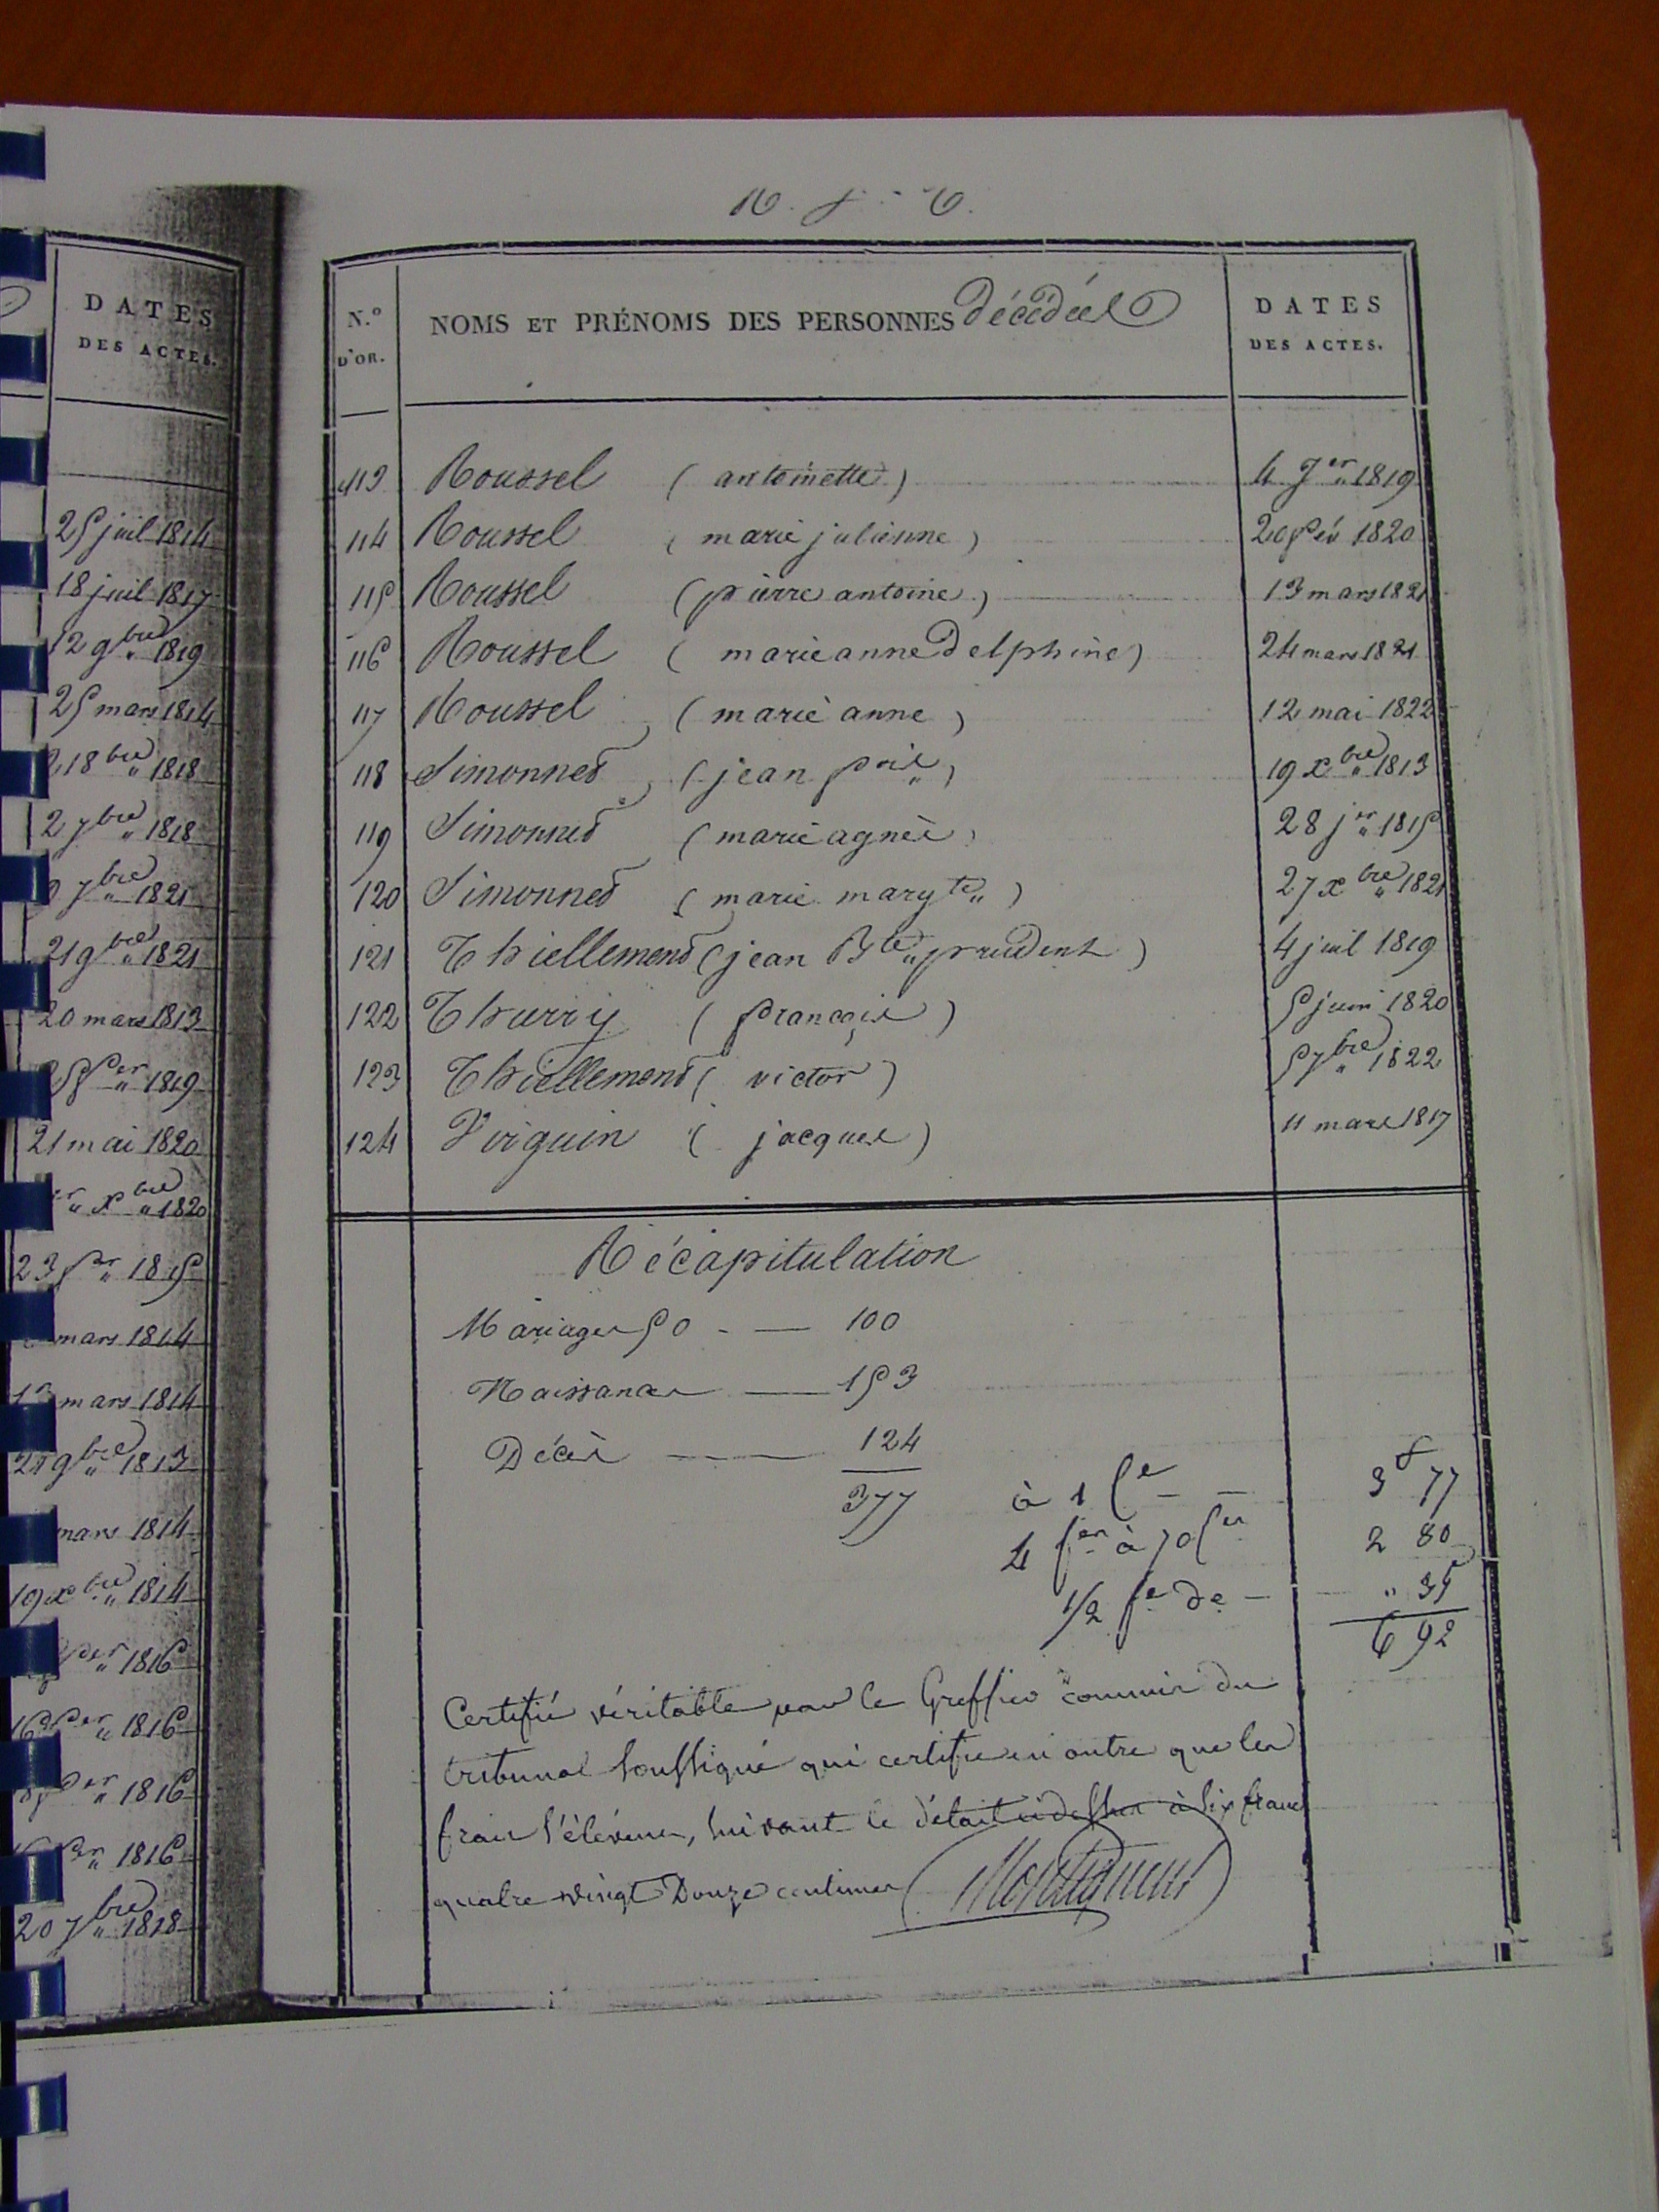 R. S. T.
DATES
DES ACTES.
25 juil 1814
18 juil 1817
12 9bre 1819
25 mars 1814
21 8bre 1818
2 7bre 1818
7bre 1821
21 9bre 1821
20 mars 1813
fer 1819
21 mai 1820
er xbre 1820
23 fer 1815
mars 1814
mars 1814
9bre 1813
mars 1814
19 xbre 1814
fer 1816
16 fer 1816
fer 1816
fer 1816
20 7bre 1818
N.º D'OR. NOMS ET PRÉNOMS DES PERSONNES décédées DATES DES ACTES.
113 Roussel (antoinette) 4 Jer 1819
114 Roussel (marie julienne) 20 fév 1820
115 Roussel (pierre antoine) 13 mars 1821
116 Roussel (marie anne Delphine) 24 mars 1821
117 Roussel (marie anne) 12 mai 1822
118 Simonnet (jean fois) 19 xbre 1813
119 Simonnet (marie agnès) 28 jer 1815
120 Simonnet (marie margte) 27 xbre 1821
121 Thiellement (jean Bte prudent) 4 juil 1819
122 Thurry (françois) 5 juin 1820
123 Thiellement (victor) 5 7bre 1822
124 Virguin (jacques) 11 mars 1817
Récapitulation
Mariages 50 - — 100
Naissances — 153
Décès — 124
377 à 1 Ce - - 3f 77
4 fes à 70 Ces 2 80
1/2 fe de - " 35
6 92
Certifié véritable par le Greffier commis du
tribunal soussigné qui certifie en outre que les
frais s'élèvent, suivant le détail ci dessus à six francs
quatre vingt Douze centimes